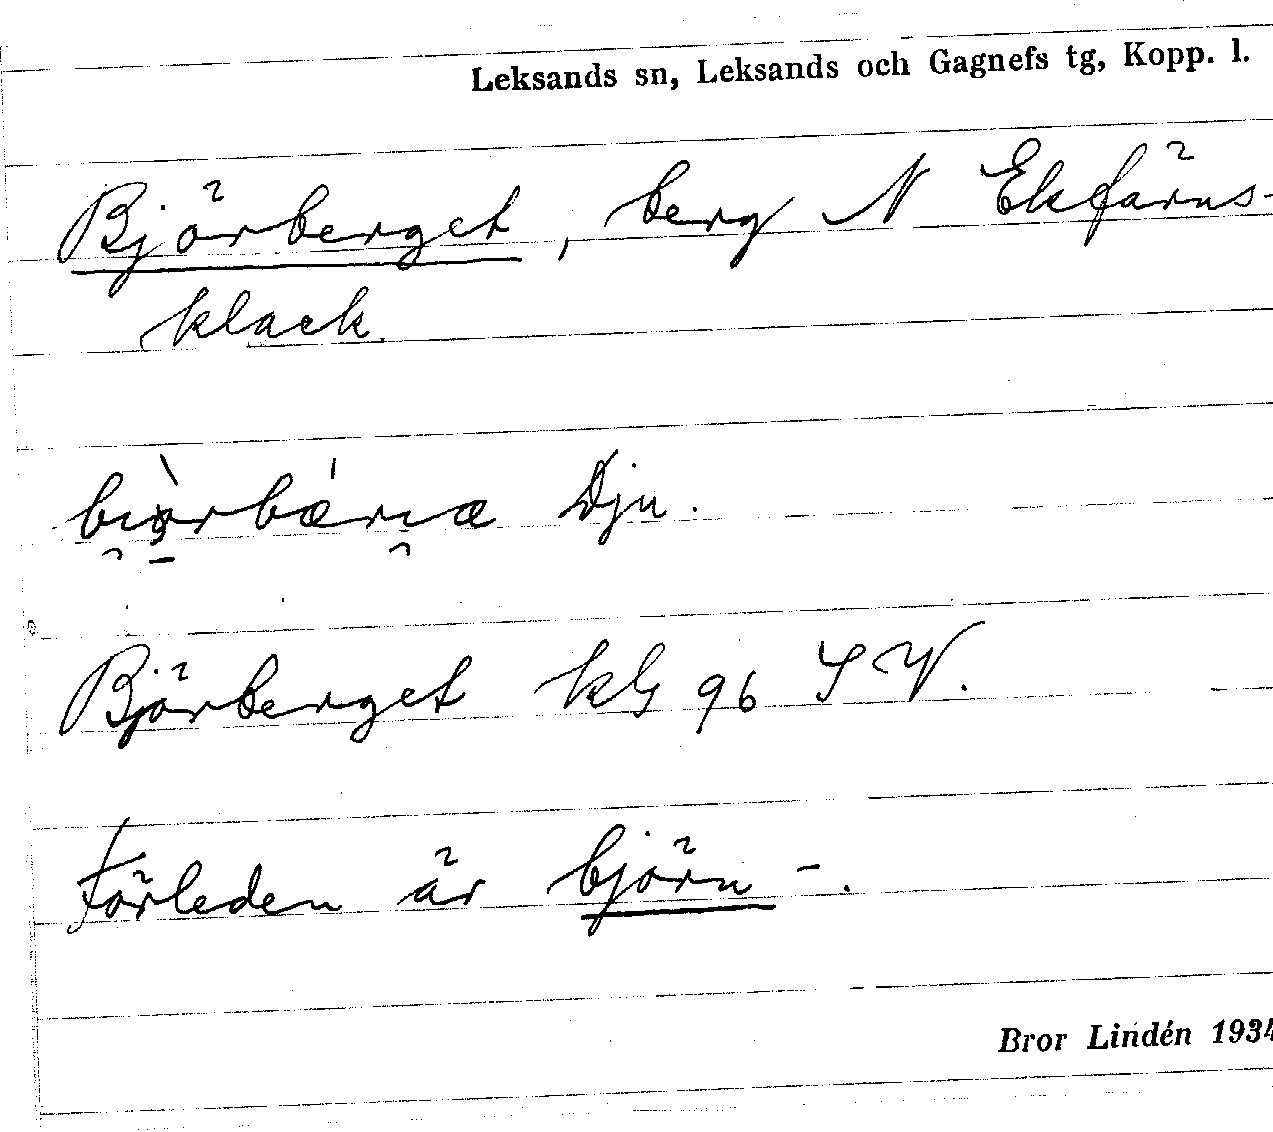 Leksands sn, Leksands och Gagnefs tg, Kopp. l.
Björberget, berg N Ekfärns-
klack.
Dju.
Björberget kbl 96 SV.
Förleden är björn-.
Bror Lindén 1934